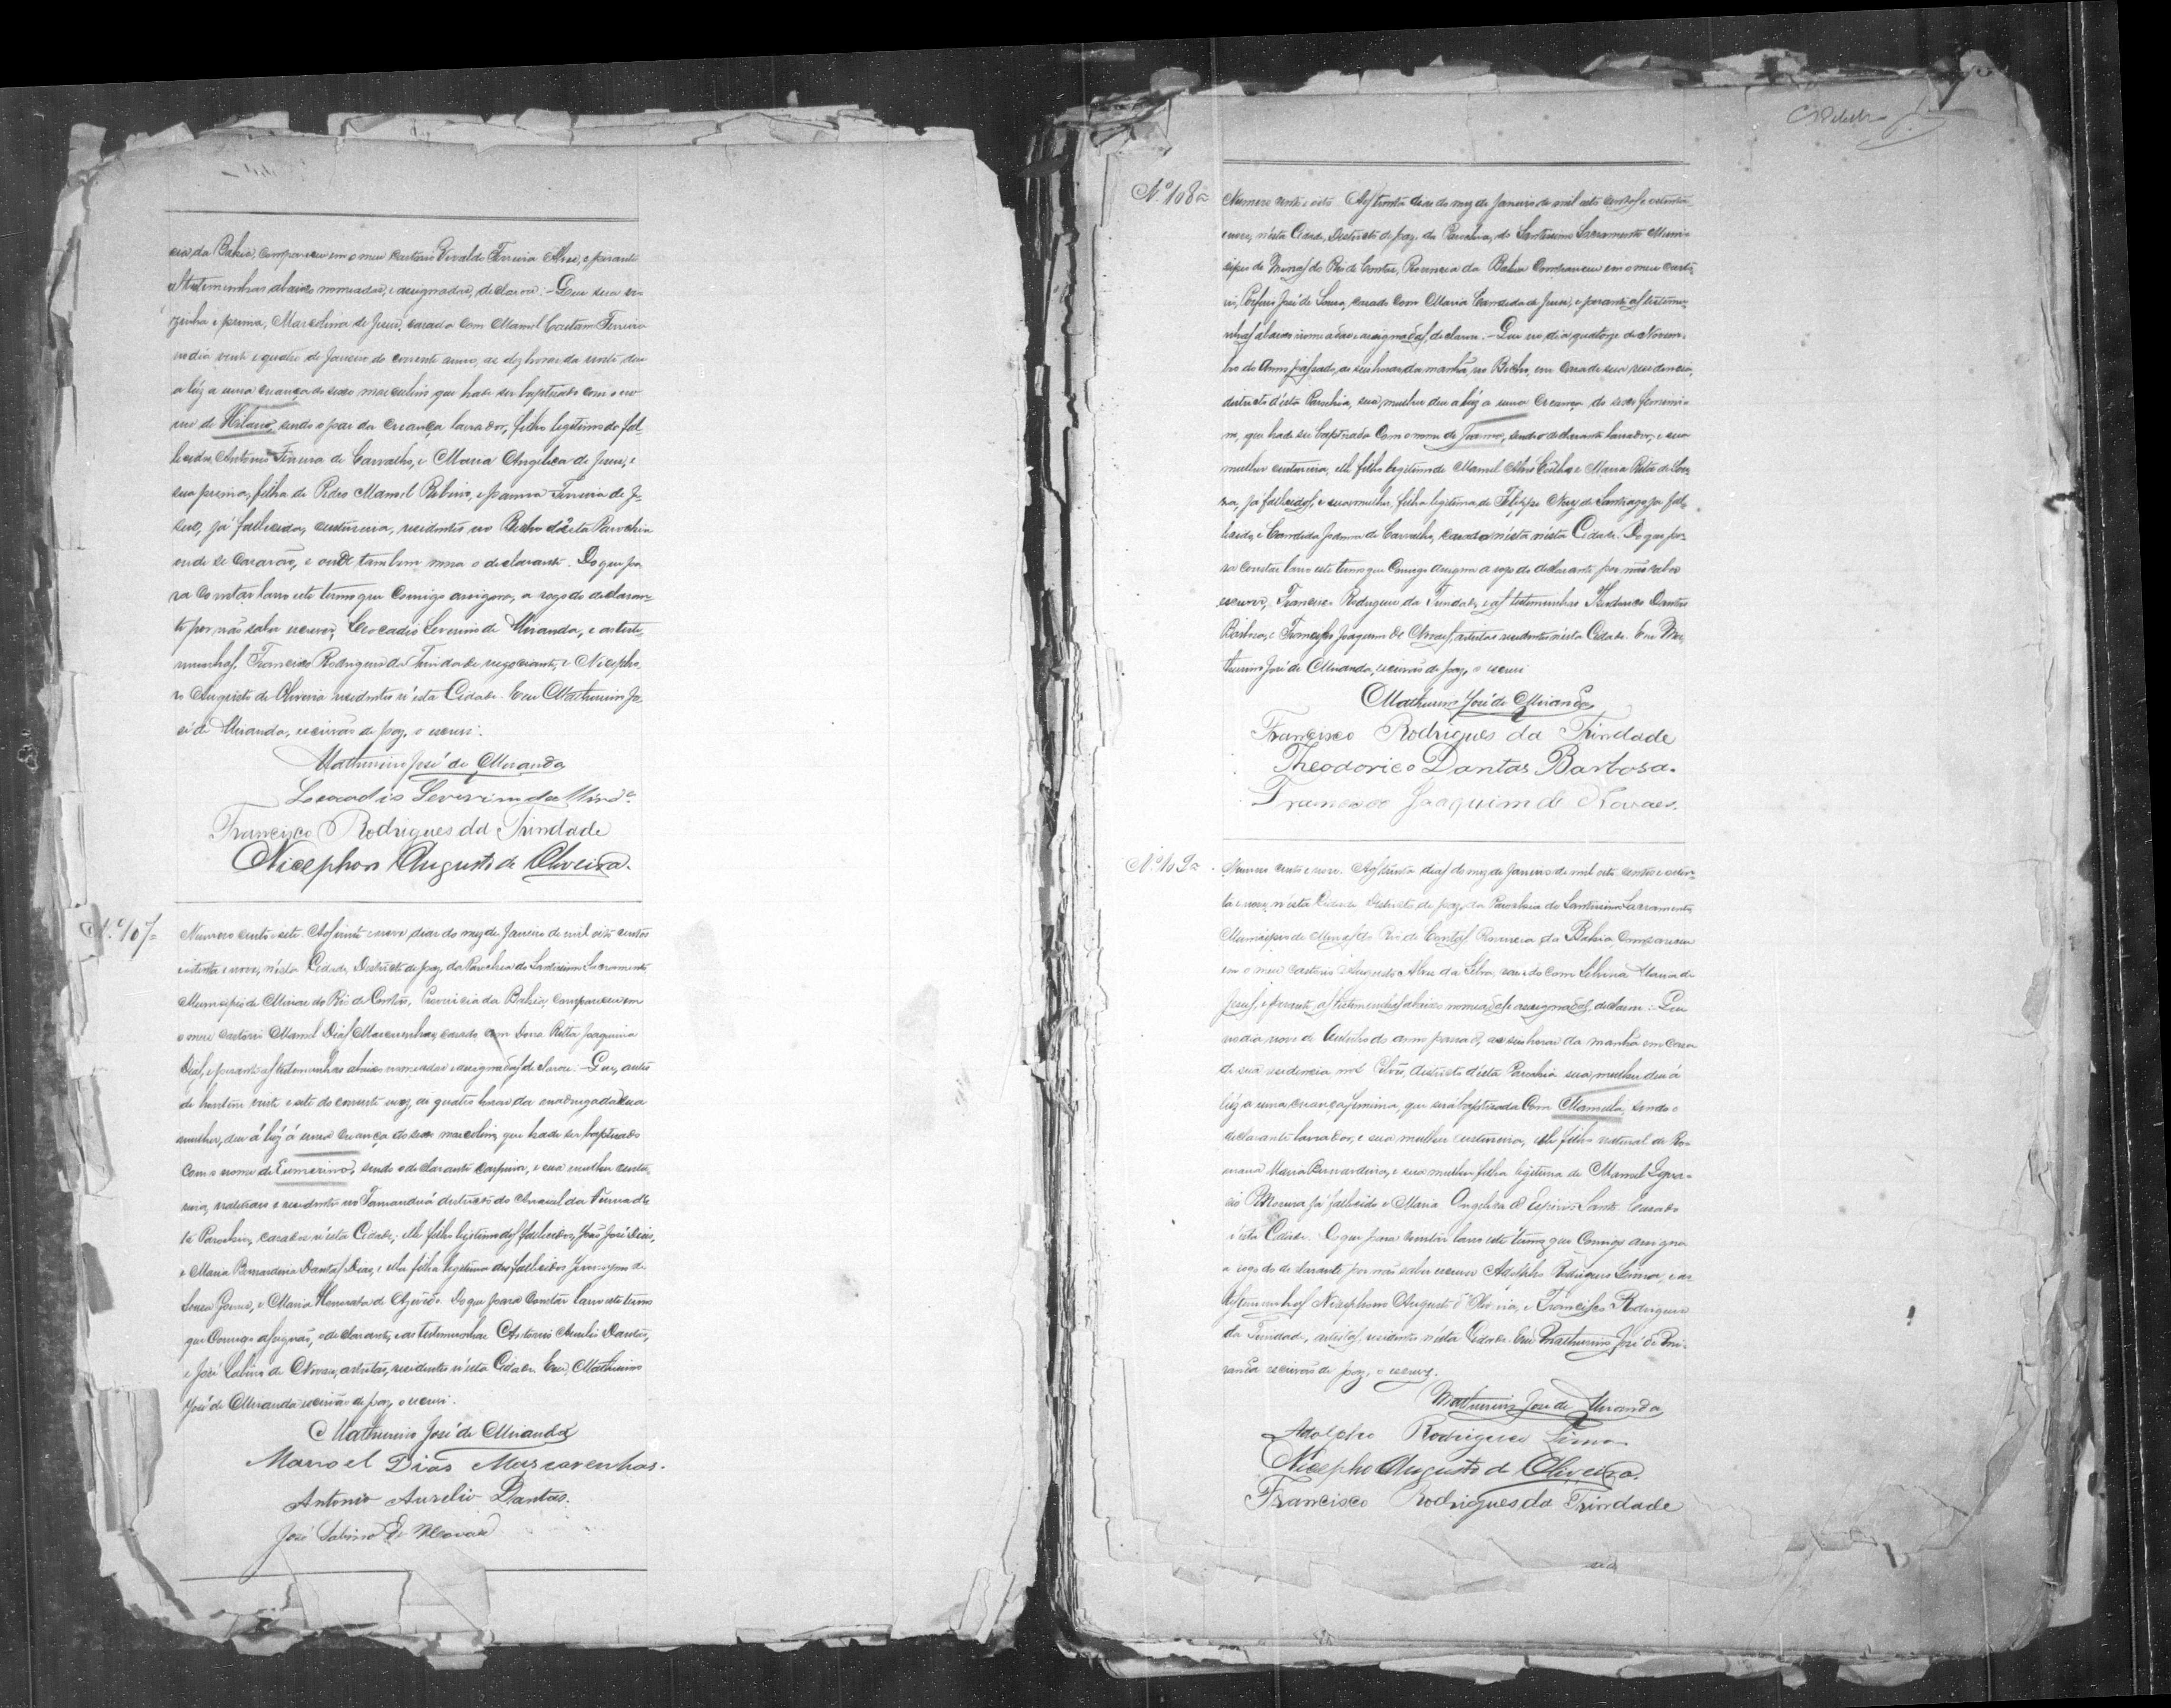 cia da Bahia, compareceu em o meu Cartorio Ferreira Alves, e perante
as testemunhas abaixo nomeadas, e assignadas, declarou: – Que sua
e prima, Marcolina de Jesus, casada com Manoel Caetano Ferreira
no dia vinte e quatro de Janeiro do corrente anno, as dez horas da noite, deu
a lúz a uma creança do sexo masculino que hade ser baptisado com o no-
me de Hilario, sendo o pae da creança lavrador, filho legitimo do fal-
lecidos, Antonio Ferreira de Carvalho, e Maria Angelica de Jesus, e
sua prima, filha de Pedro Manoel Ribeiro, e Joanna Ferreira de Je-
sus, já fallecida, custureira, residentes no d'esta Parochia
onde se casarão, e onde tambem mora o declarante. Do que pa-
ra constar lavro este termo que comigo assigna, a rogo do declaran-
te por não saber escrever, Leocadio Severino de Miranda, e as teste-
munhas, Francisco Rodrigues da Trindade negociante, e Nicepho-
ro Augusto de Oliveira residentes n'esta Cidade. Eu Mathurino Jo-
sé de Miranda, escrivão de paz, o escrevi.
Mathurino José de Miranda
Leocadio Severino de Mirda
Francisco Rodrigues da Trindade
Nicephoro Augusto de Oliveira.
N.º 107=
Numero cento e sete. Aos vinte e nove dias do mez de Janeiro de mil oito centos
e oitenta e nove, n'esta Cidade, Districto de paz da Parochia do Santissimo Sacramento
Municipio de Minas do Rio de Contas, Provincia da Bahia, compareceu em
o meu Cartorio Manoel Dias Mascarenhas, casado com Dona Ritta Joaquina
Dias, e perante as testemunhas abaixo nomeadas e assignadas declarou: – Que, antes
de hontem vinte e sete do corrente mez, as quatro horas da madrugada sua
mulher, deu á lúz á uma creança do sexo masculino, que hade ser baptisado
com o nome de Eumerino, sendo o declarante carpina, e sua mulher custu-
reira, naturaes e residentes no Tamanduá districto do Arraial da Furna d'es-
ta Parochia, casados n'esta Cidade, elle filho legitimo dos fallecidos, João José Dias,
e Maria Bernardina Dantas Dias, e ella filha legitima dos fallecidos de
Souza Gomes, e Maria Honorata de Azevedo. Do que para constar lavro este termo
que comigo assignão, o declarante, e as testemunhas Antonio Aurelio Dantas,
e José Sabino de Novaes, artistas, residentes n'esta Cidade. Eu, Mathurino
José de Miranda escrivão de paz, o escrevi.
Mathurino José de Miranda
Manoel Dias Mascarenhas.
Antonio Aurelio Dantas.
José Sabino de Novaes
N.º 108=
Numero cento e oito. Aos trinta dias do mez de Janeiro de mil oito centos e oitenta
e nove, n'esta Cidade, Districto de paz, da Parochia, do Santissimo Sacramento Muni-
cipio de Minas do Rio de Contas, Provincia da Bahia Compareceu em o meu Carto-
rio, José de Sousa, casado com Maria Candida de Jesus, e perante as testemu-
nhas abaixo nomeadas e assignadas, declarou. – Que no dia quatorze de Novem-
bro do Anno passado, as seis horas da manhã, no em casa de sua residencia,
districto d'esta Parochia, sua mulher deu a lúz a uma Creança do sexo femini-
no, que hade ser baptisada com o nome de sendo o declarante lavrador, e sua
mulher custureira, elle filho legitimo de Manoel e Maria Rita de Sou-
za, já fallecidos, e sua mulher, filha legitima de Felippe Nery de Santiago ja fal-
lecido, e Candida Joanna de Carvalho, casados n'esta Cidade. Do que pa-
ra constar lavro este termo que comigo assigna a rogo do declarante por não saber
escrever, Francisco Rodrigues da Trindade, e as testemunhas Theodorico Dantas
Barbosa, e Francisco Joaquim de Novaes, artistas residentes n'esta Cidade. Eu Ma-
thurino José de Miranda, escrivão de paz, o escrevi
Mathurino José de Miranda
Francisco Rodrigues da Trindade
Theodorico Dantas Barbosa.
Francisco Joaquim de Novaes.
N.º 109=
Numero cento e nove. Aos trinta dias do mez de Janeiro de mil oito centos e oiten-
ta e nove, n'esta Cidade Districto de paz, da Parochia do Santissimo Sacramento,
Municipio de Minas do Rio de Contas, Provincia da Bahia Compareceu
em o meu Cartorio Augusto Alves da Silva, casado com Maria de
Jesus, e perante as testemunhas abaixo nomeadas e assignadas, declarou: – Que
no dia nove de Outubro do anno passado, as seis horas da manhã em casa
de sua residencia districto d'esta Parochia sua mulher deu á
lúz a uma creança feminina, que será baptisada com Manuela, sendo o
declarante lavrador, e sua mulher custureira, elle filho natural de Ro-
mana Maria Bernardina, e sua mulher filha legitima de Manoel
Moreira já fallecido e Maria Angelica do Espirito Santo. Casados
n'esta Cidade. Do que para constar lavro este termo, que comigo assigna
a rogo do declarante por não saber escrever Adolpho Rodrigues Lima, e as
testemunhas Nicephoro Augusto d'Oliveira, e Francisco Rodrigues
da Trindade, artistas, residentes n'esta Cidade. Eu Mathurino José de Mi-
randa escrivão de paz, o escrevi.
Mathurino José de Miranda
Adolpho Rodrigues Lima
Nicepho Augusto de Oliveira.
Francisco Rodrigues da Trindade